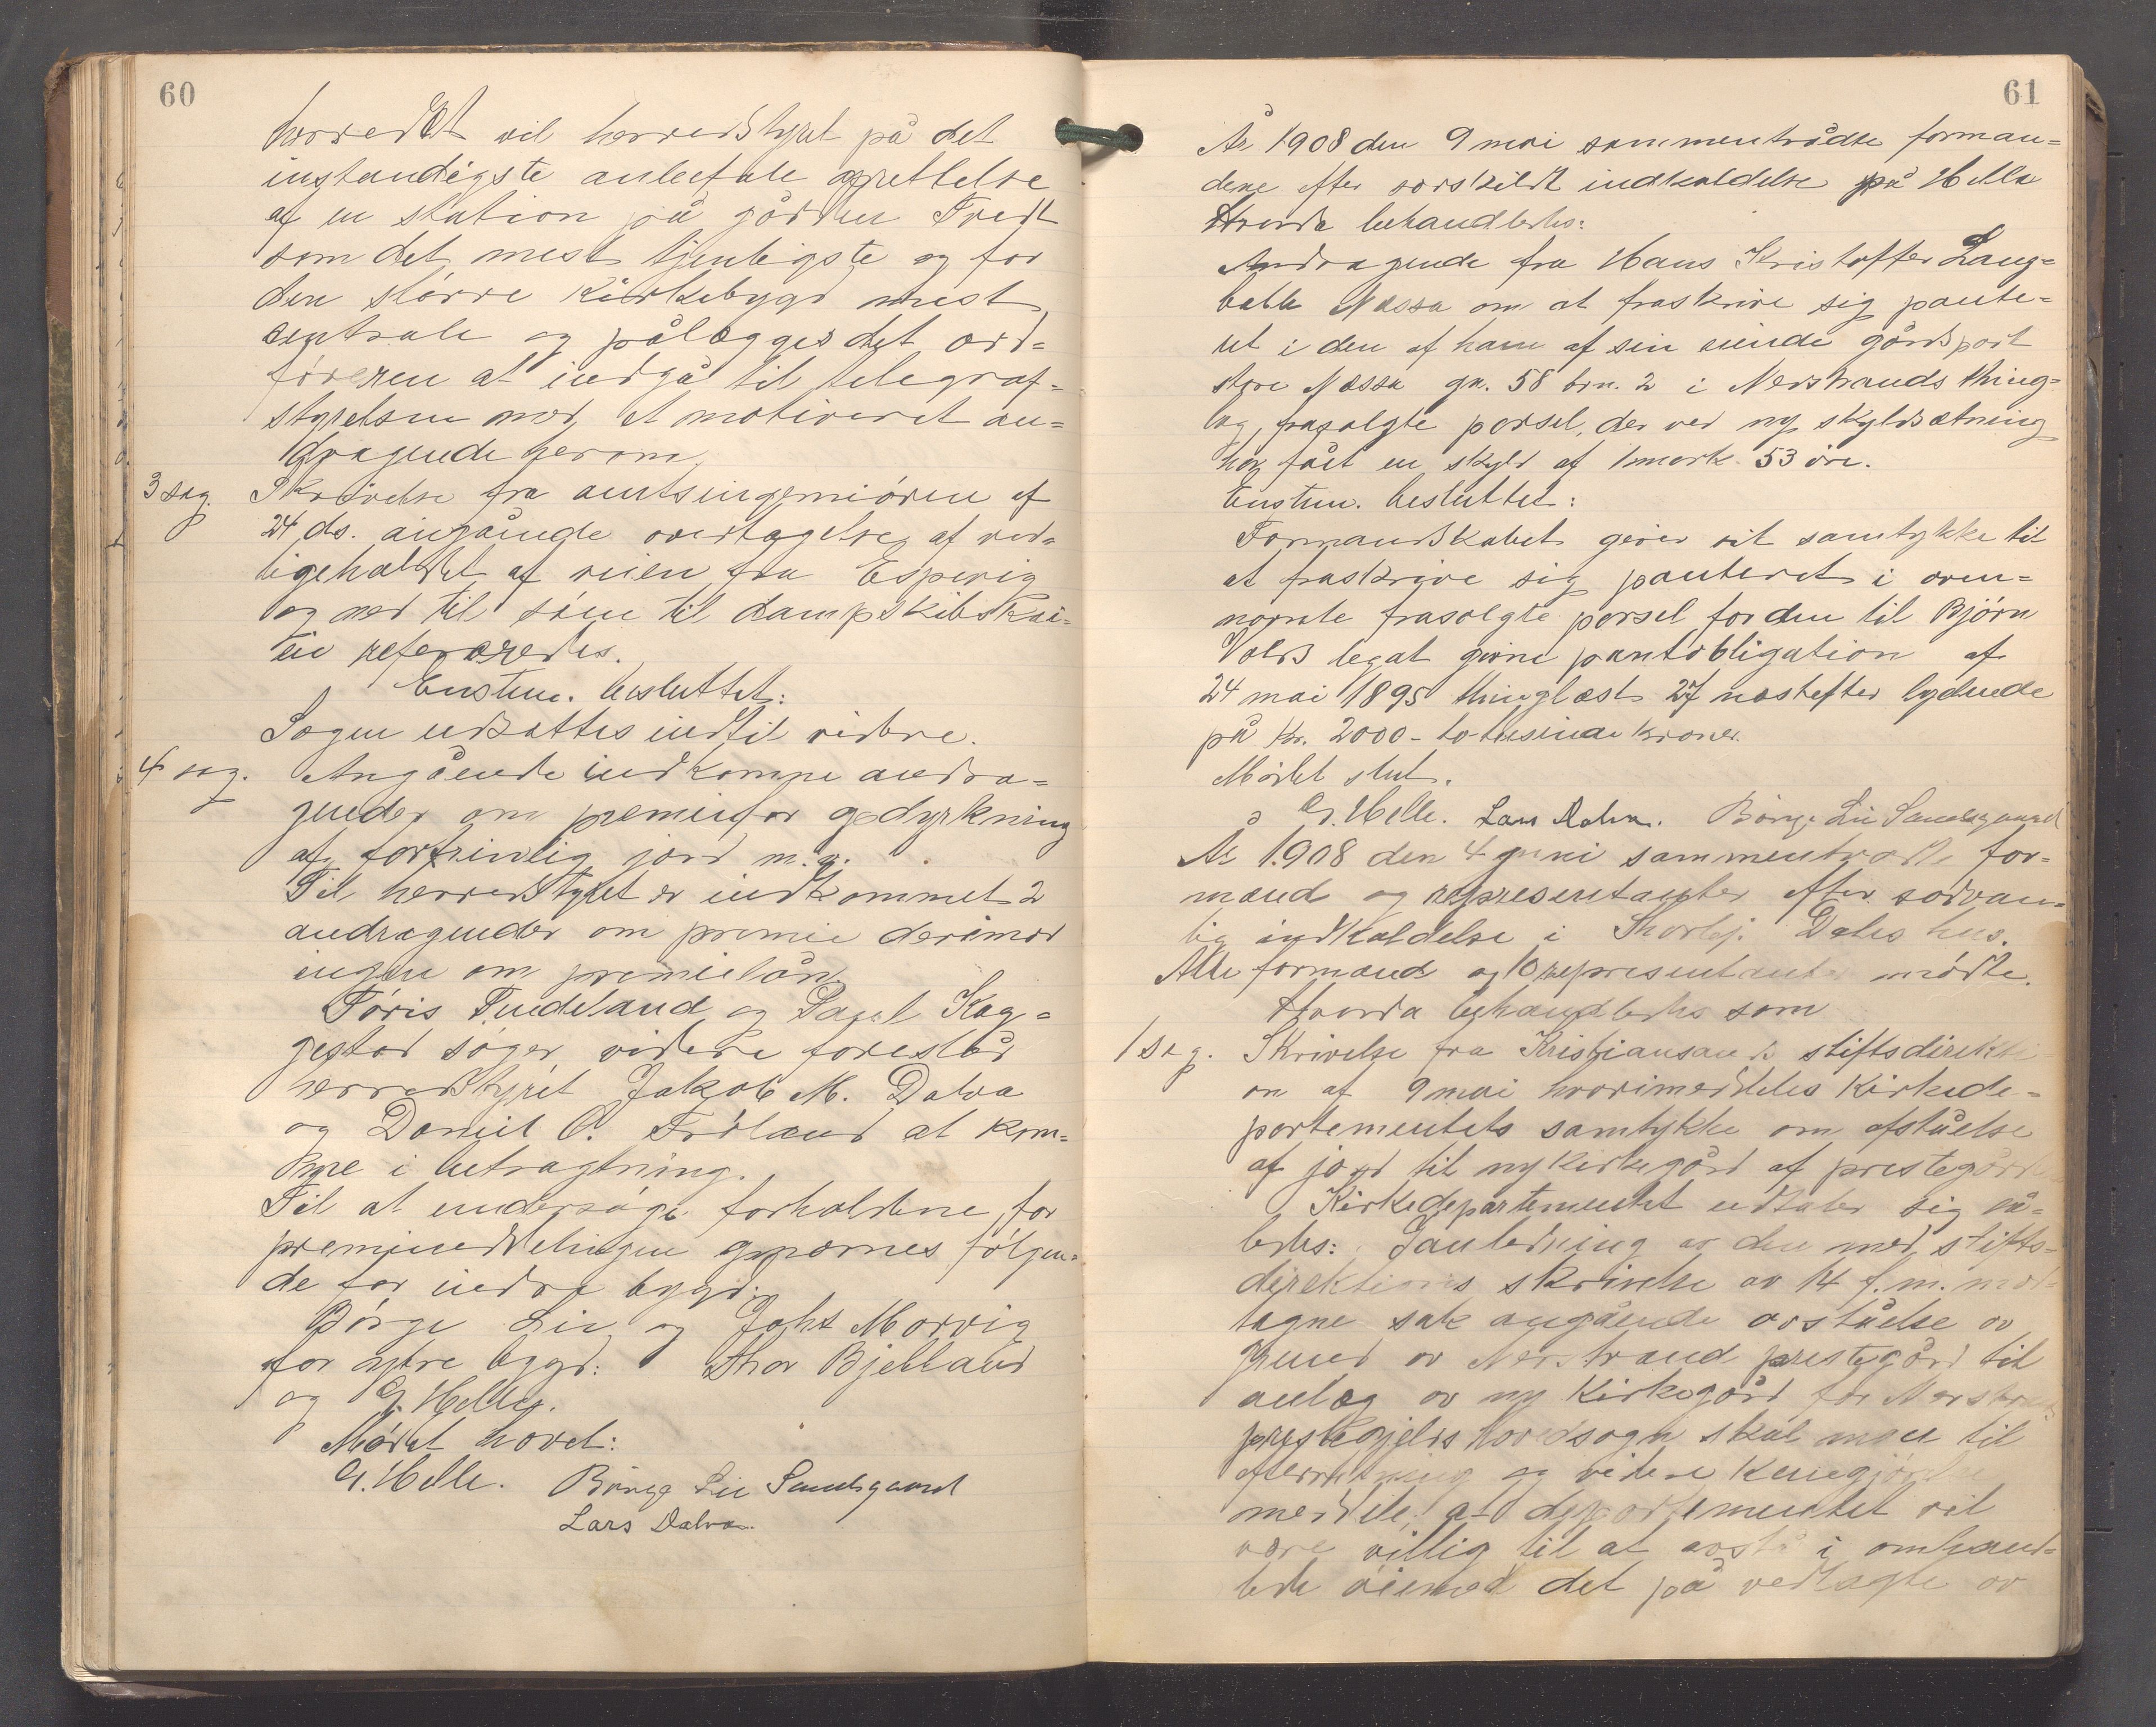 60
herredet vil herredstyret på det
instendigste anbefale oprettelse
af en station på gården Tvedt
som det mest tjenligste og for
den större Kirkebygd mest
centrale og pålægges det ord=
föreren at indgå til telegraf=
styrelsen med et motiveret an=
dragende herom.
3 sag. Skrivelse fra amtsingeniören af
24 ds. angående overtagelse af ved=
ligeholdet af veien fra Espevig
og ned til söen til dampskibskai=
en refereredes.
Enstem. besluttet:
Sagen udsattes indtil videre.
4 sag. Angående indkomne andra=
gender om premie for opdyrkning
af fortrinlig jord m.v.
Til herredstyret er indkommet 2
andragender om premie derimod
ingen om premielån
Töris Tindeland og Paul Kag=
gestad söger, videre foreslår
herredstyret Jakob M. Dalva
og Daniel O. Fröland at kom=
me i betragtning.
Til at undersöge forholdene for
premieuddelingen opnævnes fölgen=
de for indre bygd:
Börge Lie og Johs Morvig
for ytre bygd: Thor Bjelland
og G. Helle.
Mödet hævet:
G. Helle. Börge Lie Sandsgaard
Lars Dalva.
61
År 1908 den 9 mai sammentrådte forman=
dene efter særskildt indkaldelse på Helle
Hvorda behandledes:
Andragende fra Hans Kristoffer Lang=
balle Næssa om at fraskrive sig pante=
ret i den af ham af sin eiende gårdspart
ytre Næssa gn. 58 brn. 2 i Nerstrands thing=
lag, frasolgte parsel, der ved ny skyldsætning
har fået en skyld af 1 mark 53 öre.
Enstem. besluttet:
Formandskabet giver sit samtykke til
at fraskrive sig panteret i oven=
nævnte frasolgte parsel for den til Björn
Volds legat givne pantobligation af
24 mai 1895 thinglæst 27 næstefter lydende
på Kr. 2000 - totusinde kroner.
Mödet slut.
G. Helle. Lars Dalva. Börge Lie Sandsgaard
År 1908 den 4 juni sammentrådte for=
mænd og representanter efter sædvan=
lig indkaldelse i Thorbj. Dales hus.
Alle formænd og 10 representanter mödte.
Hvorda behandledes som
1 sag. Skrivelse fra Kristiansands stiftsdirekti
on af 9 mai hvori meddeles Kirkede=
partementets samtykke om afståelse
af jord til ny kirkegård af prestegården
Kirkedepartementet udtaler sig så=
ledes: I anledning av den med stifts=
direktionens skrivelse av 14 f.m. mot=
tagne sak angående avståelse av
grund av Nerstrand prestegård til
anlæg av ny kirkegård for Nerstrands
prestegjelds hovedsogn skal man til
efterretning og videre kundgjörelse
meddele, at departementet vil
være villig til at avstå i omhand=
lede öiemed det på vedlagte av